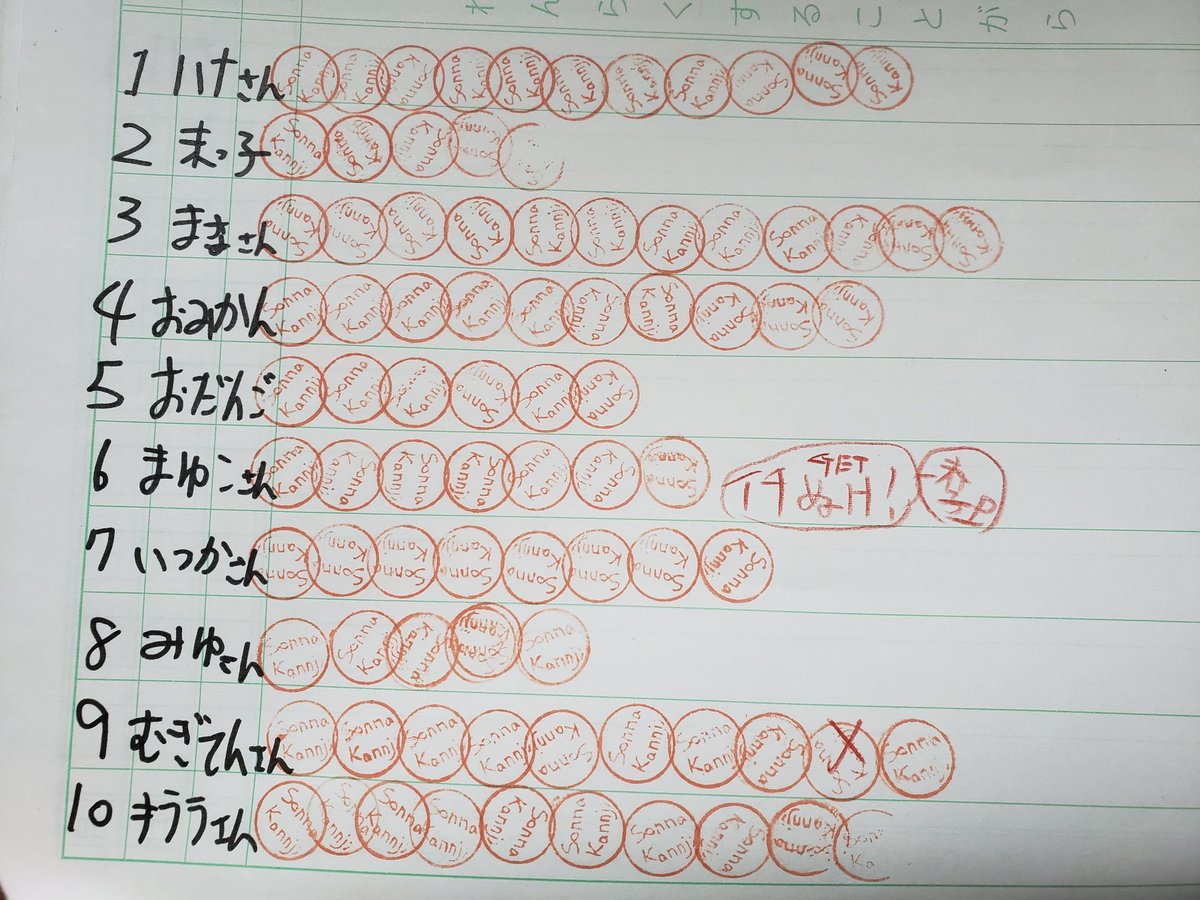 れんらくすることがら
1 ハナさん Sonna Kannji Sonna Kannji Sonna Kannji Sonna Kannji Sonna Kannji Sonna Kannji Sonna Kannji Sonna Kannji Sonna Kannji Sonna Kannji Sonna Kannji
2 末っ子 Sonna Kannji Sonna Kannji Sonna Kannji Sonna Kannji
3 まきさん Sonna Kannji Sonna Kannji Sonna Kannji Sonna Kannji Sonna Kannji Sonna Kannji Sonna Kannji Sonna Kannji Sonna Kannji Sonna Kannji Sonna Kannji Sonna Kannji
4 おみかん Sonna Kannji Sonna Kannji Sonna Kannji Sonna Kannji Sonna Kannji Sonna Kannji Sonna Kannji Sonna Kannji Sonna Kannji Sonna Kannji
5 おだんご Sonna Kannji Sonna Kannji Sonna Kannji Sonna Kannji Sonna Kannji Sonna Kannji
6 まゆこさん Sonna Kannji Sonna Kannji Sonna Kannji Sonna Kannji Sonna Kannji Sonna Kannji Sonna Kannji GET イチぬけ!
7 いつかさん Sonna Kannji Sonna Kannji Sonna Kannji Sonna Kannji Sonna Kannji Sonna Kannji Sonna Kannji Sonna Kannji
8 みゆさん Sonna Kannji Sonna Kannji Sonna Kannji Sonna Kannji Sonna Kannji
9 むぎてんさん Sonna Kannji Sonna Kannji Sonna Kannji Sonna Kannji Sonna Kannji Sonna Kannji Sonna Kannji Sonna Kannji X Sonna Kannji
10 キララさん Sonna Kannji Sonna Kannji Sonna Kannji Sonna Kannji Sonna Kannji Sonna Kannji Sonna Kannji Sonna Kannji Sonna Kannji